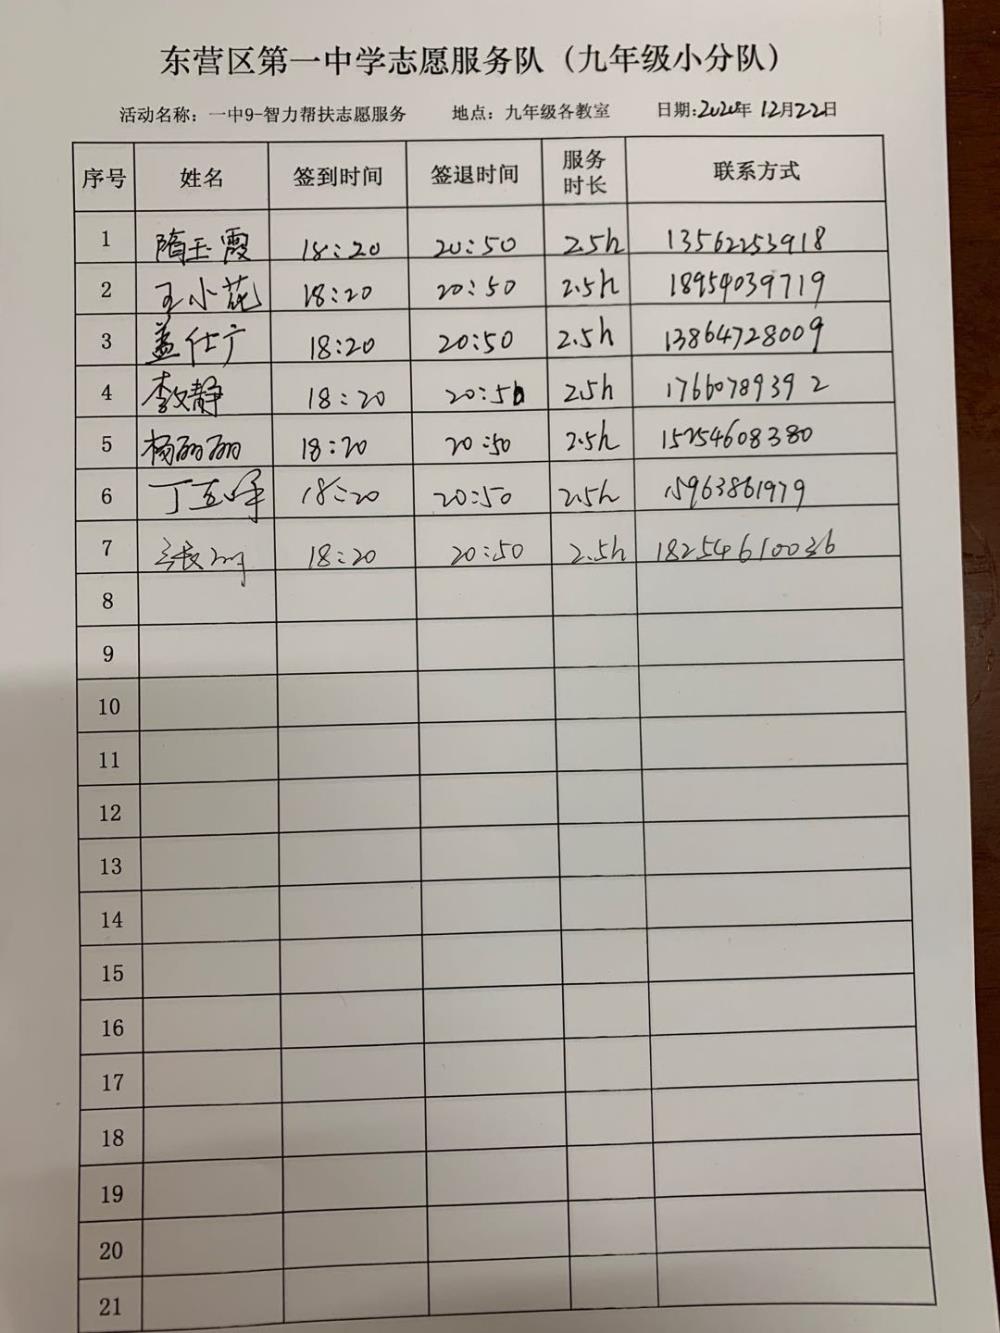 东营区第一中学志愿服务队（九年级小分队）
活动名称：一中9-智力帮扶志愿服务 地点：九年级各教室 日期:2020年 12月22日
序号 姓名 签到时间 签退时间 服务时长 联系方式
1 隋玉霞 18:20 20:50 2.5h 13562253918
2 王小花 18:20 20:50 2.5h 18954039719
3 盖仕广 18:20 20:50 2.5h 13864728009
4 李文静 18:20 20:50 2.5h 17660789392
5 杨丽丽 18:20 20:50 2.5h 15254608380
6 18:20 20:50 2.5h 15963861979
7 18:20 20:50 2.5h 18254610036
8
9
10
11
12
13
14
15
16
17
18
19
20
21